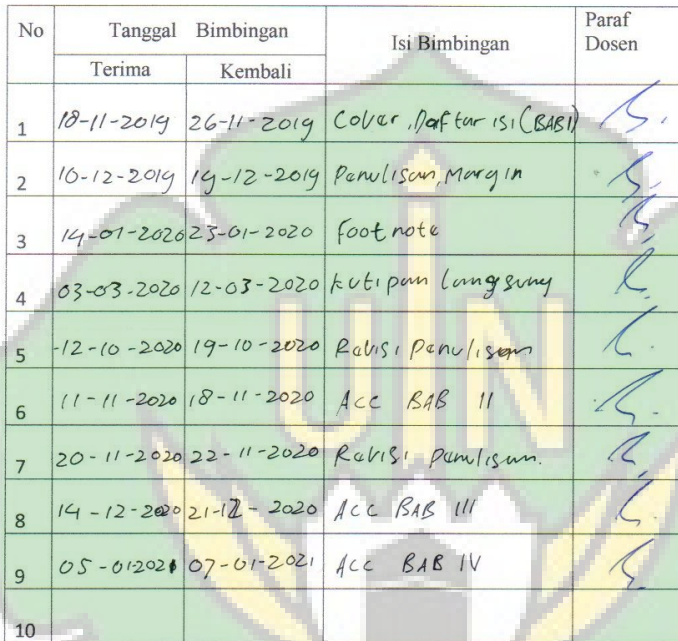 No Tanggal Bimbingan Isi Bimbingan Paraf Dosen
Terima Kembali
1 18-11-2019 26-11-2019 Cover, Daftar isi (BAB I)
2 10-12-2019 19-12-2019 Penulisan, Margin
3 14-01-2020 23-01-2020 Footnote
4 03-03-2020 12-03-2020 kutipan langsung
5 -12-10-2020 19-10-2020 Revisi Penulisan
6 11-11-2020 18-11-2020 Acc BAB II
7 20-11-2020 22-11-2020 Revisi penulisan.
8 14-12-2020 21-12-2020 Acc BAB III
9 05-01-2021 07-01-2021 Acc BAB IV
10
UIN